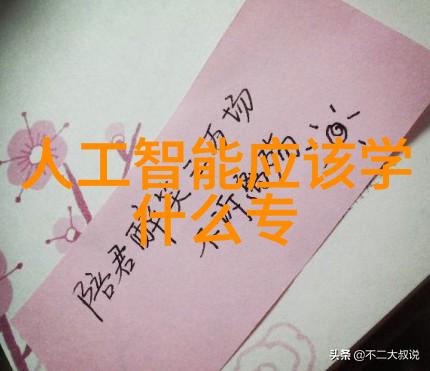 人工智能应该学
什么专
陪君醉笑三 场
不诉离殇
头条 @不二大叔说